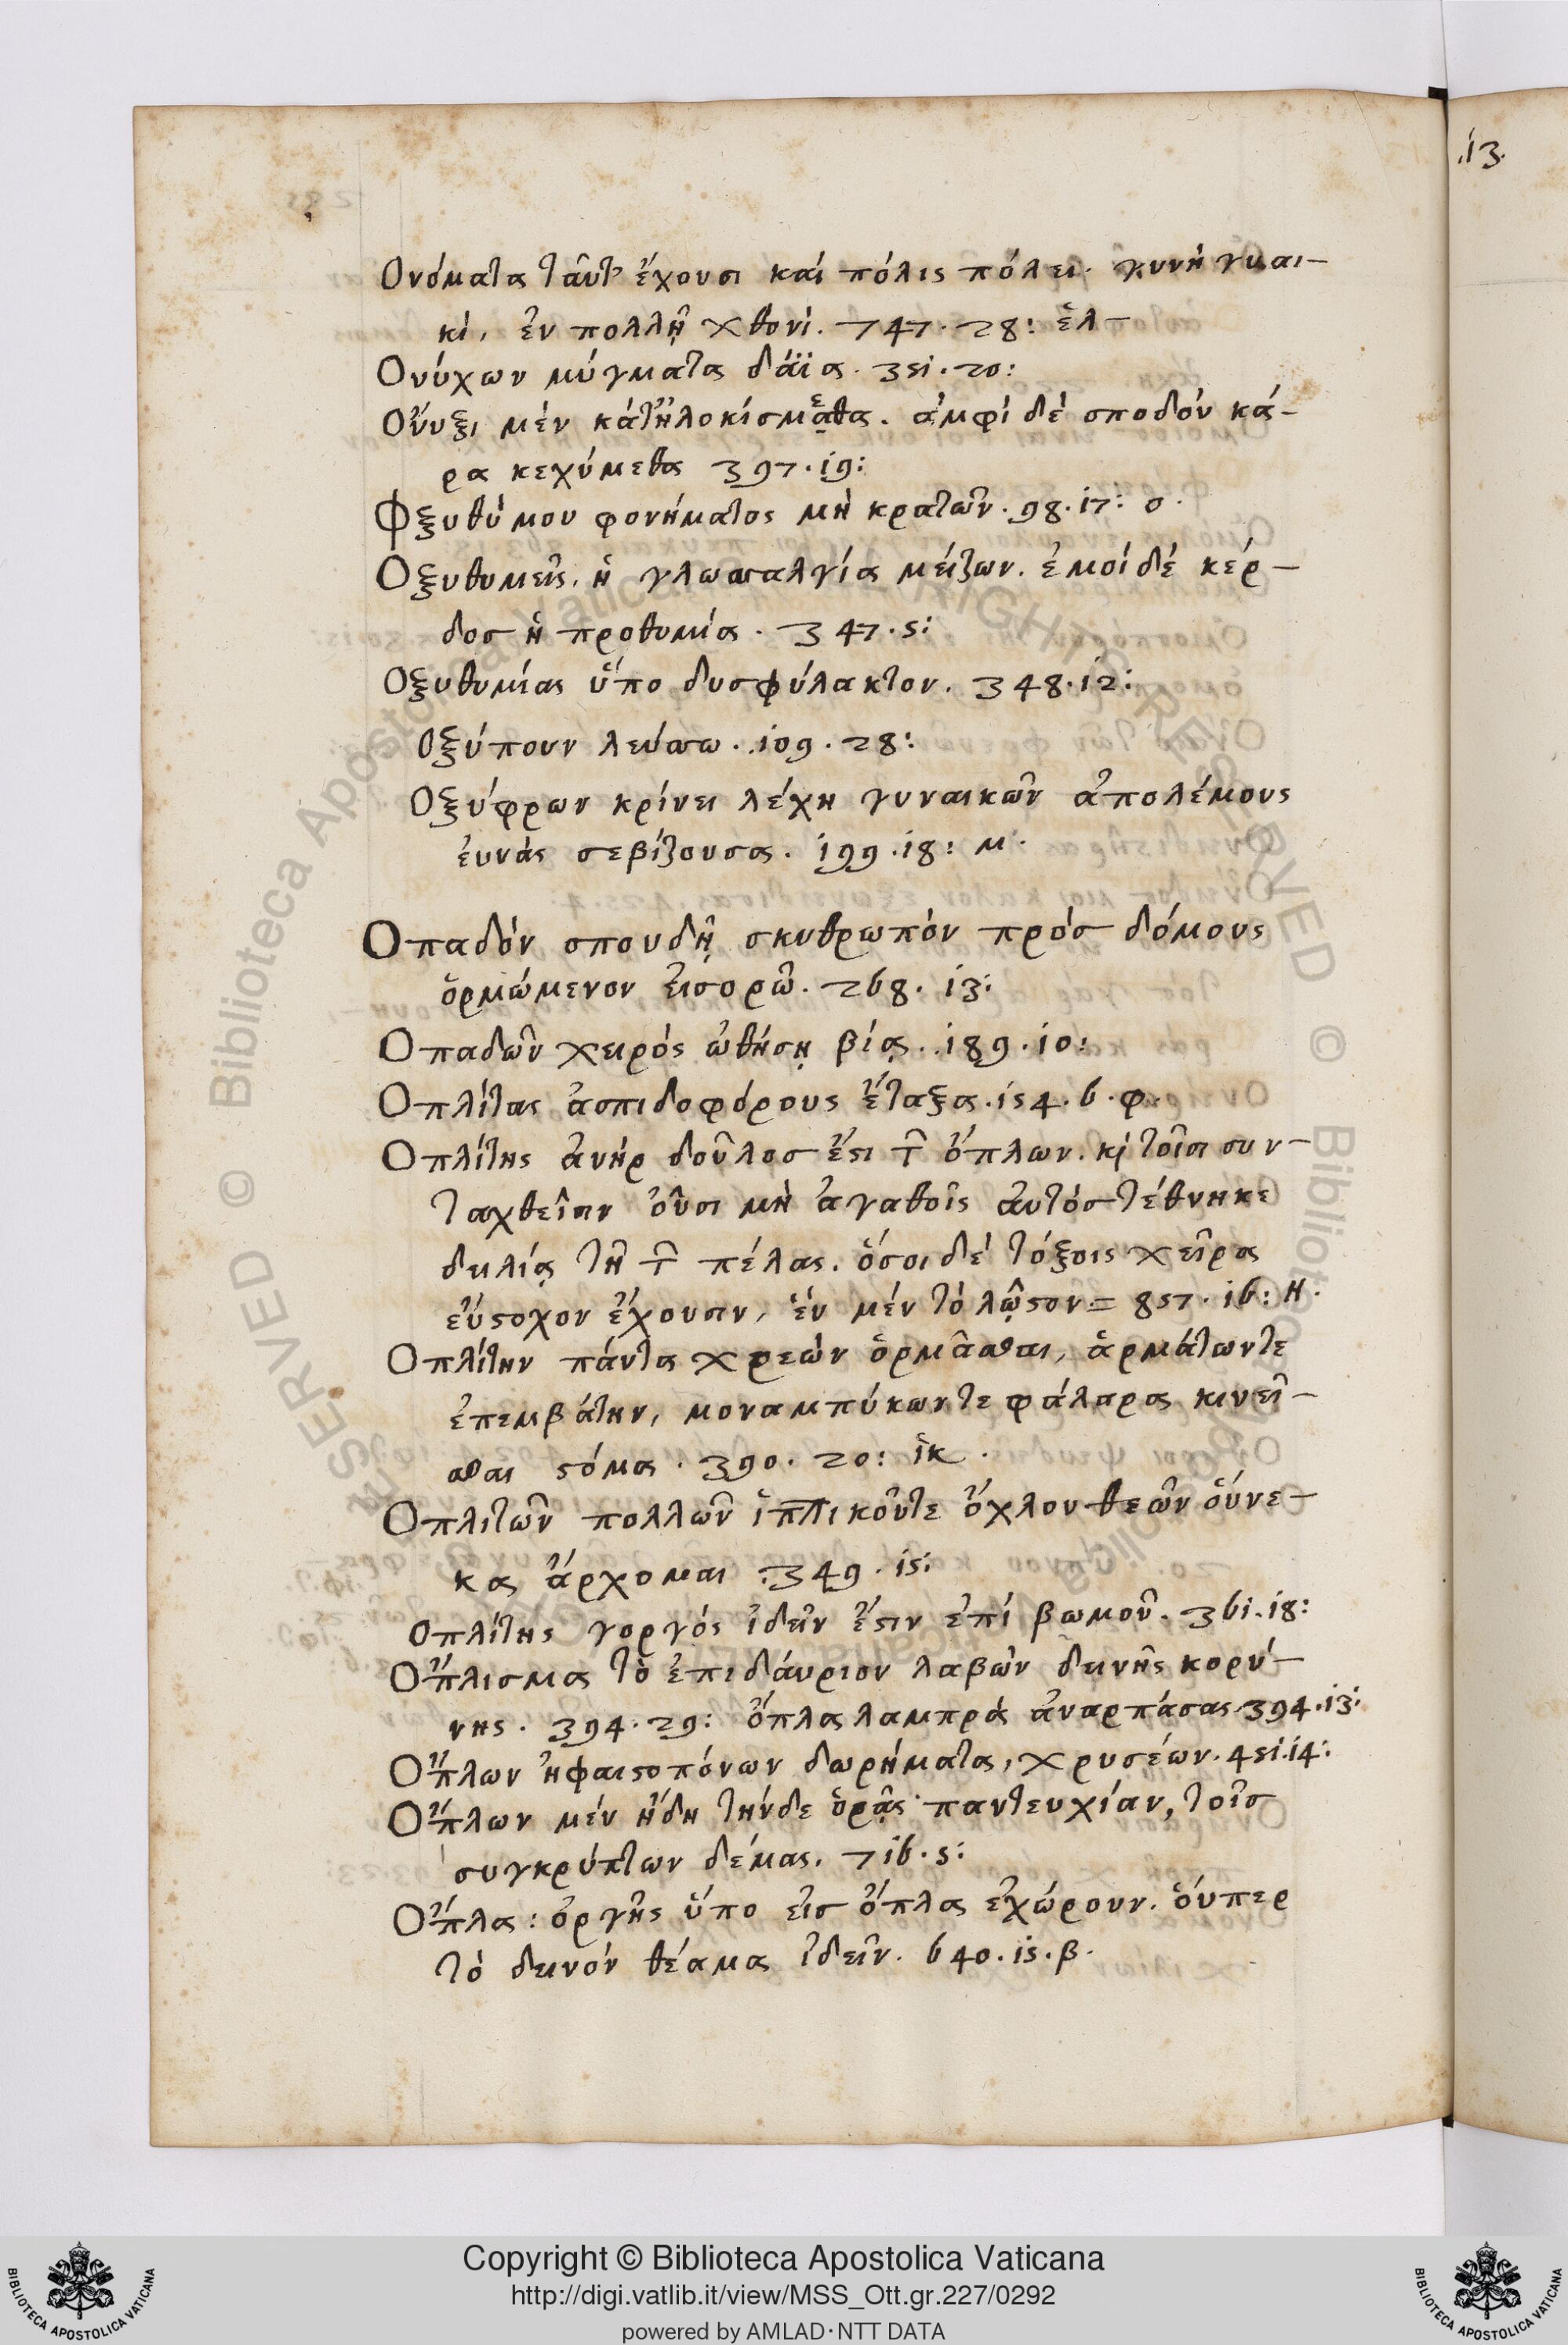 Ονόματα ταῦτ' ἔχουσι καί πόλις πόλει. γυνὴ γυναι-
κὶ, ἐν πολλῇ χθονὶ. 747. 28: ἑλ-
Ονύχων μύγματα δάϊα. 351. 20:
Ὄνυξι μέν κατηλοκίσμεθα. ἀμφὶ δὲ σποδὸν κά-
ρα κεχύμεθα 397. 19:
Οξυθύμου φονήματος μὴ κρατῶν. 98. 17: ο.
Οξυθυμεῖς. ἡ γλωσσαλγία μείζων. ἐμοί δέ κέρ-
δοσ ἡ προθυμία. 347. 5:
Οξυθυμίας ὕπο δυσφύλακτον. 348. 12:
Οξύπουν λεύσσω. 109. 28:
Οξύφρων κρίνει λέχη γυναικῶν ἀπολέμους
ἐυνάς σεβίζουσα. 199. 18: μ.
Οπαδόν σπουδῇ σκυθρωπόν πρόσ δόμους
ὁρμώμενον εἰσορῶ. 268. 13:
Οπαδῶν χειρός ὠθήσῃ βίᾳ. 189. 10:
Οπλίτας ἀσπιδοφόρους ἔταξα. 154. 6. φ.
Οπλίτης ἀνήρ δοῦλοσ ἔστι τ῀ ὅπλων. κὶ τοῖσι συν-
ταχθεῖσιν οὖσι μὴ ἀγαθοῖς ἀυτόσ τέθνηκε
δειλίᾳ τῇ τ῀ πέλας. ὅσοι δέ τόξοις χεῖρα
εὔστοχον ἔχουσιν, ἓν μέν τὸ λῷστον = 857. 16: Η.
Οπλίτην πάντα χρεών ὁρμᾶσθαι, ἁρμάτωντε
ἐπεμβάτην, μοναμπύκωντε φάλαρα κινεῖ-
σθαι στόμα. 390. 20: ἱκ.
Οπλιτῶν πολλῶν ἱππικοῦτε ὄχλον θεῶν ὁύνε-
κα ἄρχομαι 349. 15:
Οπλίτης γοργός ἰδεῖν ἔστιν ἐπί βωμοῦ. 361. 18:
Ὅπλισμα τὸ ἐπιδάυριον λαβών δεινῆς κορύ-
νης. 394. 29: ὅπλα λαμπρά ἀναρπάσας 394. 13:
Ὅπλων ἡφαιστοπόνων δωρήματα, χρυσέων. 451. 14:
Ὅπλων μέν ἤδη τήνδε ὁρᾷς παντευχίαν, τοῖσ
συγκρύπτων δέμας. 716. 5:
Ὅπλα: ὀργῆς ὕπο εἰσ ὅπλα ἐχώρουν. ὁύπερ
τὸ δεινόν θέαμα ἰδεῖν. 640. 15. β.
13.
Copyright © Biblioteca Apostolica Vaticana
http://digi.vatlib.it/view/MSS_Ott.gr.227/0292
powered by AMLAD·NTT DATA
BIBLIOTECA APOSTOLICA VATICANA
BIBLIOTECA APOSTOLICA VATICANA